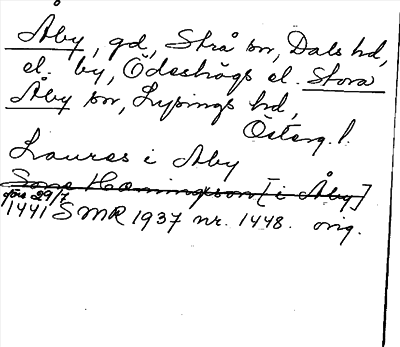 Åby, gd, Strå sn, Dals hd,
el. by, Ödeshögs el. Stora
Åby sn, Lysings hd,
Österg. l.
Laures i Aby
Sone Hemingsson [i Åby]
före 29/7
1441 SMR 1937 nr. 1448. orig.